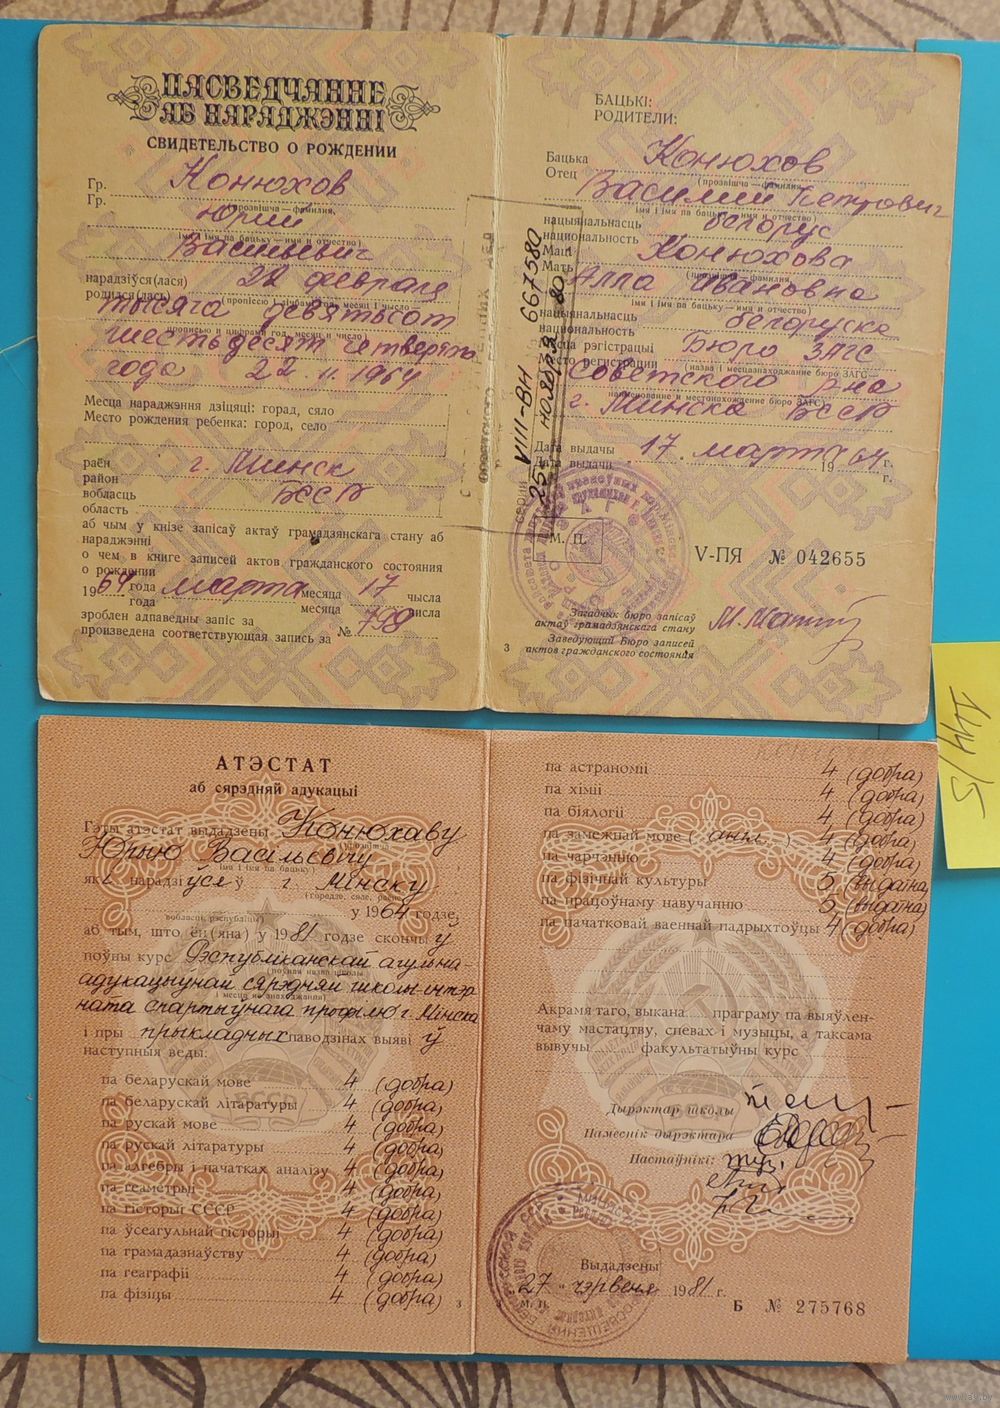 ПАСВЕДЧАННЕ
АБ НАРАДЖЭННІ
СВИДЕТЕЛЬСТВО О РОЖДЕНИИ
Гр. Конюхов
Гр.
(прозвішча — фамилия,
Юрий
імя і імя па бацьку — имя и отчество)
Васильевич
нарадзіўся(лася) 22 февраля
родился(лась)
тысяча девятьсот
(прописью и цифрами год, месяц и число)
шестьдесят четвертого
года 22 II. 1964
Месца нараджэння дзіцяці: горад, сяло
Место рождения ребенка: город, село
раён г. Минск
район
вобласць БССР
область
аб чым у кнізе запісаў актаў грамадзянскага стану аб
нараджэнні
о чем в книге записей актов гражданского состояния
о рождении
1964 года марта месяца 17 чысла
года месяца числа
зроблен адпаведны запіс за
произведена соответствующая запись за № 798
БАЦЬКІ:
РОДИТЕЛИ:
Бацька Конюхов
Отец
(прозвішча — фамилия,
Василий Петрович
імя і імя па бацьку — имя и отчество)
нацыянальнасць белорус
национальность
Маці Конюхова
Мать
Алла Ивановна
імя і імя па бацьку — имя и отчество)
нацыянальнасць белоруска
национальность
Месца рэгістрацыі Бюро ЗАГС
Место регистрации
(назва і месцазнаходжанне бюро ЗАГС—
Советского р-на
наименование и местонахождение бюро ЗАГС)
г. Минска БССР
Дата выдачы 17 марта 1964 г.
Дата выдачи г.
М. П.
V-ПЯ № 042655
Загадчык бюро запісаў
актаў грамадзянскага стану
Заведующий Бюро записей
актов гражданского состояния
3
серии VIII-ВН 667580
25 ноября 80
144/5
АТЭСТАТ
аб сярэдняй адукацыі
Гэты атэстат выдадзены Конюхаву
(прозвішча
Юрыю Васільевічу
імя і імя па бацьку)
які нарадзіўся ў г. Мінску
(горадзе, сяле,
у 1964 годзе,
вобласць, рэспубліка)
аб тым, што ён (яна) у 1981 годзе скончыў
поўны курс Рэспубліканскай агульна-
(поўная назва школы
адукацыйнай сярэдняй школы-інтэр
і месца яе знаходжання)
ната спартыўнага профілю г. Мінска
і пры прыкладных паводзінах выявіў
наступныя веды:
па беларускай мове 4 (добра)
па беларускай літаратуры 4 (добра)
па рускай мове 4 (добра)
па рускай літаратуры 4 (добра)
па алгебры і пачатках аналізу 4 (добра)
па геаметрыі 4 (добра)
па гісторыі СССР 4 (добра)
па ўсеагульнай гісторыі 4 (добра)
па грамадазнаўству 4 (добра)
па геаграфіі 4 (добра)
па фізіцы 4 (добра)
3
па астраноміі 4 (добра)
па хіміі 4 (добра)
па біялогіі 4 (добра)
па замежнай мове (англ.) 4 (добра)
па чарчэнню 4 (добра)
па фізічнай культуры 5 (выдатна)
па працоўнаму навучанню 5 (выдатна)
па пачатковай ваеннай падрыхтоўцы 4 (добра)
Акрамя таго, выкана праграму па выяўлен-
чаму мастацтву, спевах і музыцы, а таксама
вывучы факультатыўны курс
Дырэктар школы
Намеснік дырэктара
Настаўнікі:
Выдадзены
27 чэрвеня 1981 г.
М. П.
Б № 275768